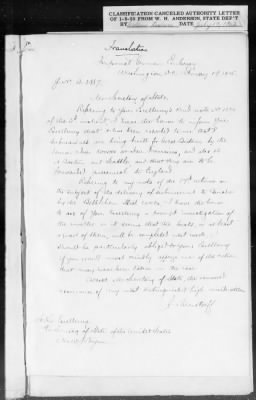 CLASSIFICATION CANCELED AUTHORITY LETTER
OF 1-8-58 FROM W. H. ANDERSON, STATE DEP'T
BY DATE
Translation
Imperial German Embassy
Washington, D.C., January 19, 1915
J. No. A 389.
Mr. Secretary of State:
Referring to Your Excellency's kind note No.
of the I have the honor to inform Your
Excellency that it has been reported to me that
submarines are being built for Great Britain by the
and also
at Boston and that they are to be
forwarded to England.
Referring to my note of the
the subject of the delivery of submarines to
by the Bethlehem Steel Works I have the honor
to ask of Your Excellency a prompt investigation of
the matter as it seems that the boats, or at least
a part of them, will be completed next week. I
should be particularly obliged to Your Excellency
if you would most kindly apprise me of the action
that may have been taken in the case.
Accept, Mr. Secretary of State, the renewed
assurance of my most distinguished high consideration.
J. Bernstorff
His Excellency
The Secretary of State of the United States
Bryan